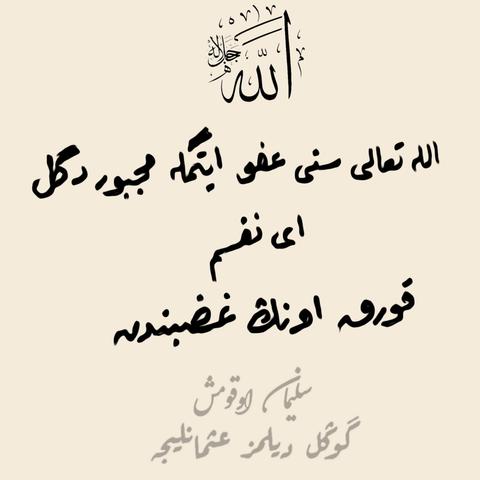 الله جل جلاله
الله تعالى سنى عفو ايتمگه مجبور دگل
اى نفسم
قورق اونڭ غضبندن
سليمان اوقومش
گوڭل ديلمز عثمانليجه